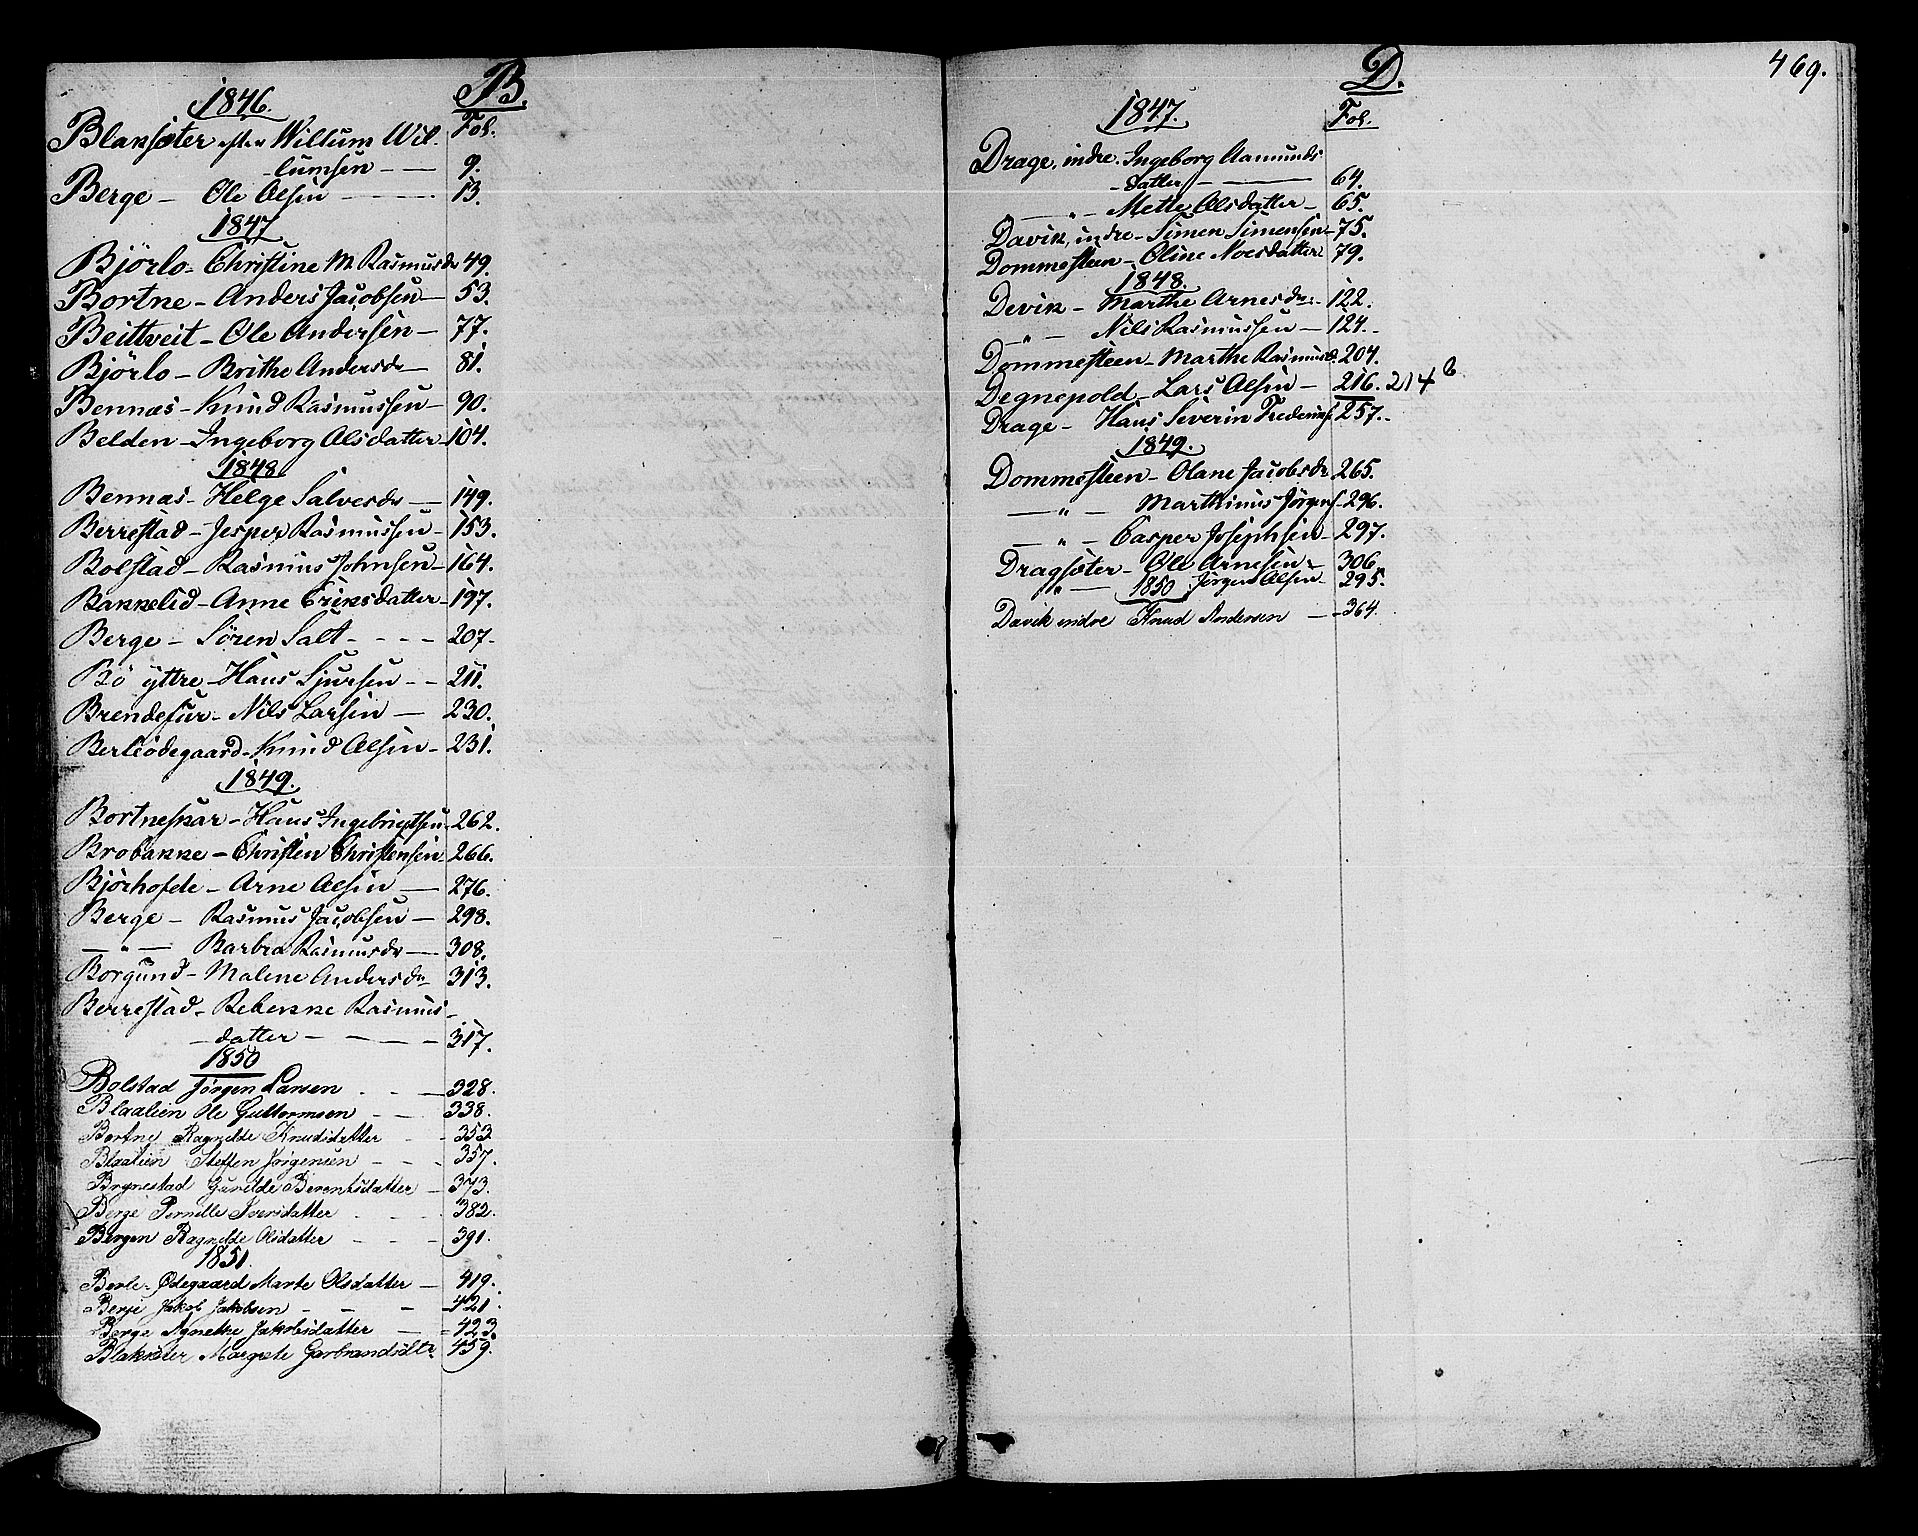 B.
1846.
Fol.
Blaksæter efter Willum Wil-
-lumsen - — 9.
Berge — Ole Olsen - - - - - 13.
1847
Bjørlo - Christine M. Rasmusdr 49.
Bortne - Anders Jacobsen — 53.
Beittveit - Ole Andersen — 77.
Bjørlo - Brithe Andersdr — 81.
Bennæs - Knud Rasmussen — 90.
Belden - Ingeborg Olsdatter - 104.
1848
Bennæs - Helge Salvesdr — 149.
Berrestad - Jesper Rasmussen - 153.
Bolstad - Rasmus Johnsen - 164.
Bakkelid - Anne Eriksdatter - 197.
Berge — Sören Salt - - - - 207.
Bö yttre - Hans Sjursen - - 211.
Brendesur - Nils Larsen — 230.
Berleödegaard - Knud Olsen - 231.
1849.
Bortneskar - Hans Ingebrigtsen - 262.
Brobakke - Christen Christensen - 266.
Bjørhofde - Arne Olsen — 276.
Berge — Rasmus Jacobsen — 298.
— " — Barbra Rasmusdr — 308.
Borgund - Malene Andersdr 313.
Berrestad - Rebekke Rasmus-
- datter - — — - 317.
1850
Bolstad Jørgen Larsen - - — 328.
Blaalien Ole Guttormsen - — 338.
Bortne Ragnilde Knudsdatter - - 353
Blaalien Steffen Jörgensen - - - 357.
Brynestad Gunilde Berentsdatter - 373.
Berge Pernille Iversdatter - - - 382.
Bergen Ragnilde Olsdatter - - - 391.
1851.
Berle-Ødegaard Marte Olsdatter — 419.
Berge Jakob Jakobsen - - - 421.
Berge Agnethe Jakobsdatter — - 423.
Blaksæter Margrete Garbrandsdtr 459.
469.
D.
1847.
Fol.
Drage, indre. Ingeborg Aamunds
- datter - — 64.
— " — Mette Olsdatter - 65.
Davik, indre - Simen Simensen - 75.
Dommesteen - Oline Noesdatter 79.
1848.
Devik - Marthe Arnesdr - 122.
— " — Nils Rasmussen — 124.
Dommesteen - Marthe Rasmusd. 204.
Degnepold - Lars Olsen — 216. 214 b
Drage - Hans Severin Frederiks 257.
1849.
Dommesteen - Olane Jacobsdr 265.
— " — Marthinus Jörgens - 296.
— " — Casper Josephsen - 297.
Dragsæter - Ole Arnesen - 306.
" — Jörgen Olsen - 295.
1850
Davik indre Knud Andersen — - 364.